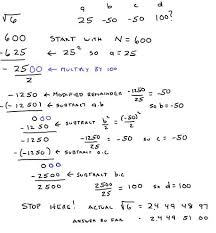 a b c d
√6 25 -50 -50 100?
600 START WITH N = 600
-625 ← 25² SO a = 25
-2500 ← MULTIPLY BY 100
2
-1250 ← MODIFIED REMAINDER -1250/25 = -50
-(-1250) ← SUBTRACT a.b SO b = -50
000
-1250 ← SUBTRACT b²/2 = (-50)²/2
-1250 -1250/25 = -50 SO c = -50
-(-1250) ← SUBTRACT a.c
000
-2500 ← SUBTRACT b.c
2500 2500/25 = 100 SO d = 100
STOP HERE! ACTUAL √6 = 2.4 49 48 97
ANSWER SO FAR = 2.4 49 51 00